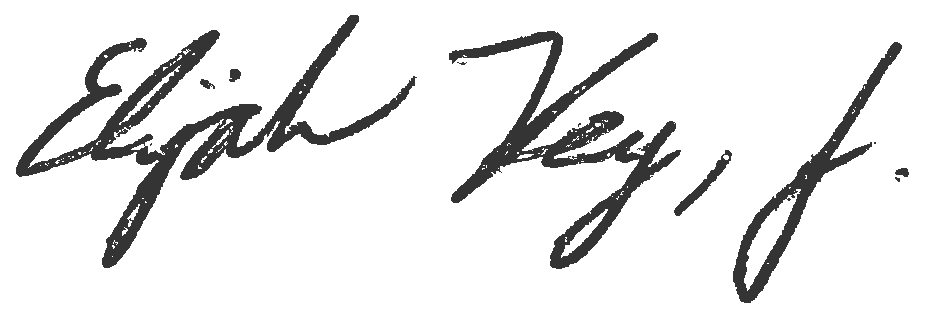 Elijah Key, Jr.